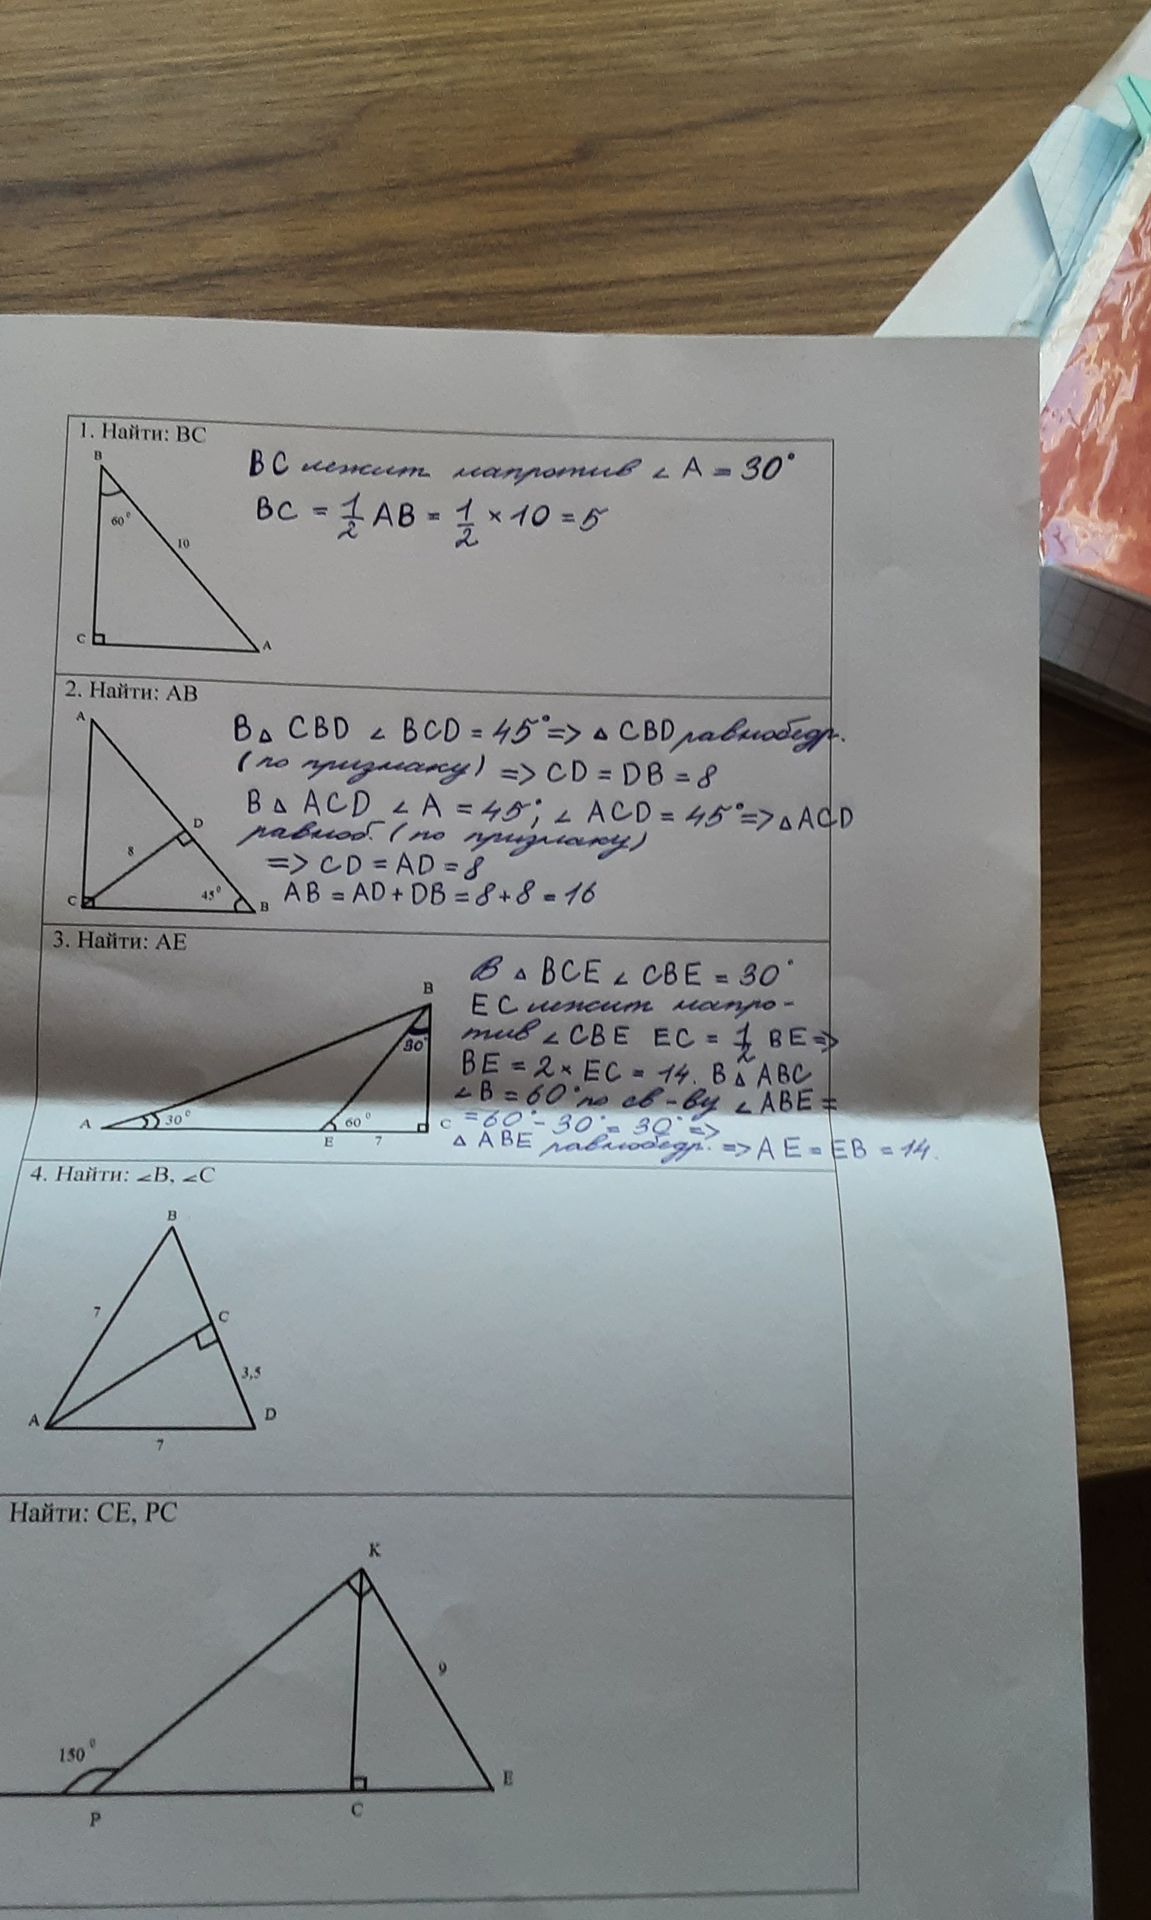 1. Найти: BC
B
60°
10
C
A
BC лежит напротив ∠ A = 30°
BC = 1/2 AB = 1/2 × 10 = 5
2. Найти: AB
A
D
8
C
45°
B
В △ CBD ∠ BCD = 45° => △ CBD равнобедр.
(по признаку) => CD = DB = 8
В △ ACD ∠ A = 45°; ∠ ACD = 45° => △ ACD
равноб. (по признаку)
=> CD = AD = 8
AB = AD + DB = 8 + 8 = 16
3. Найти: AE
B
30°
A
30°
E
60°
7
C
В △ BCE ∠ CBE = 30°
EC лежит напро-
тив ∠ CBE EC = 1/2 BE =>
BE = 2 × EC = 14. В △ ABC
∠ B = 60° по св-ву ∠ ABE =
= 60° - 30° = 30° =>
△ ABE равнобедр. => AE = EB = 14.
4. Найти: ∠B, ∠C
B
7
C
3,5
A
D
7
Найти: CE, PC
K
9
150°
P
C
E